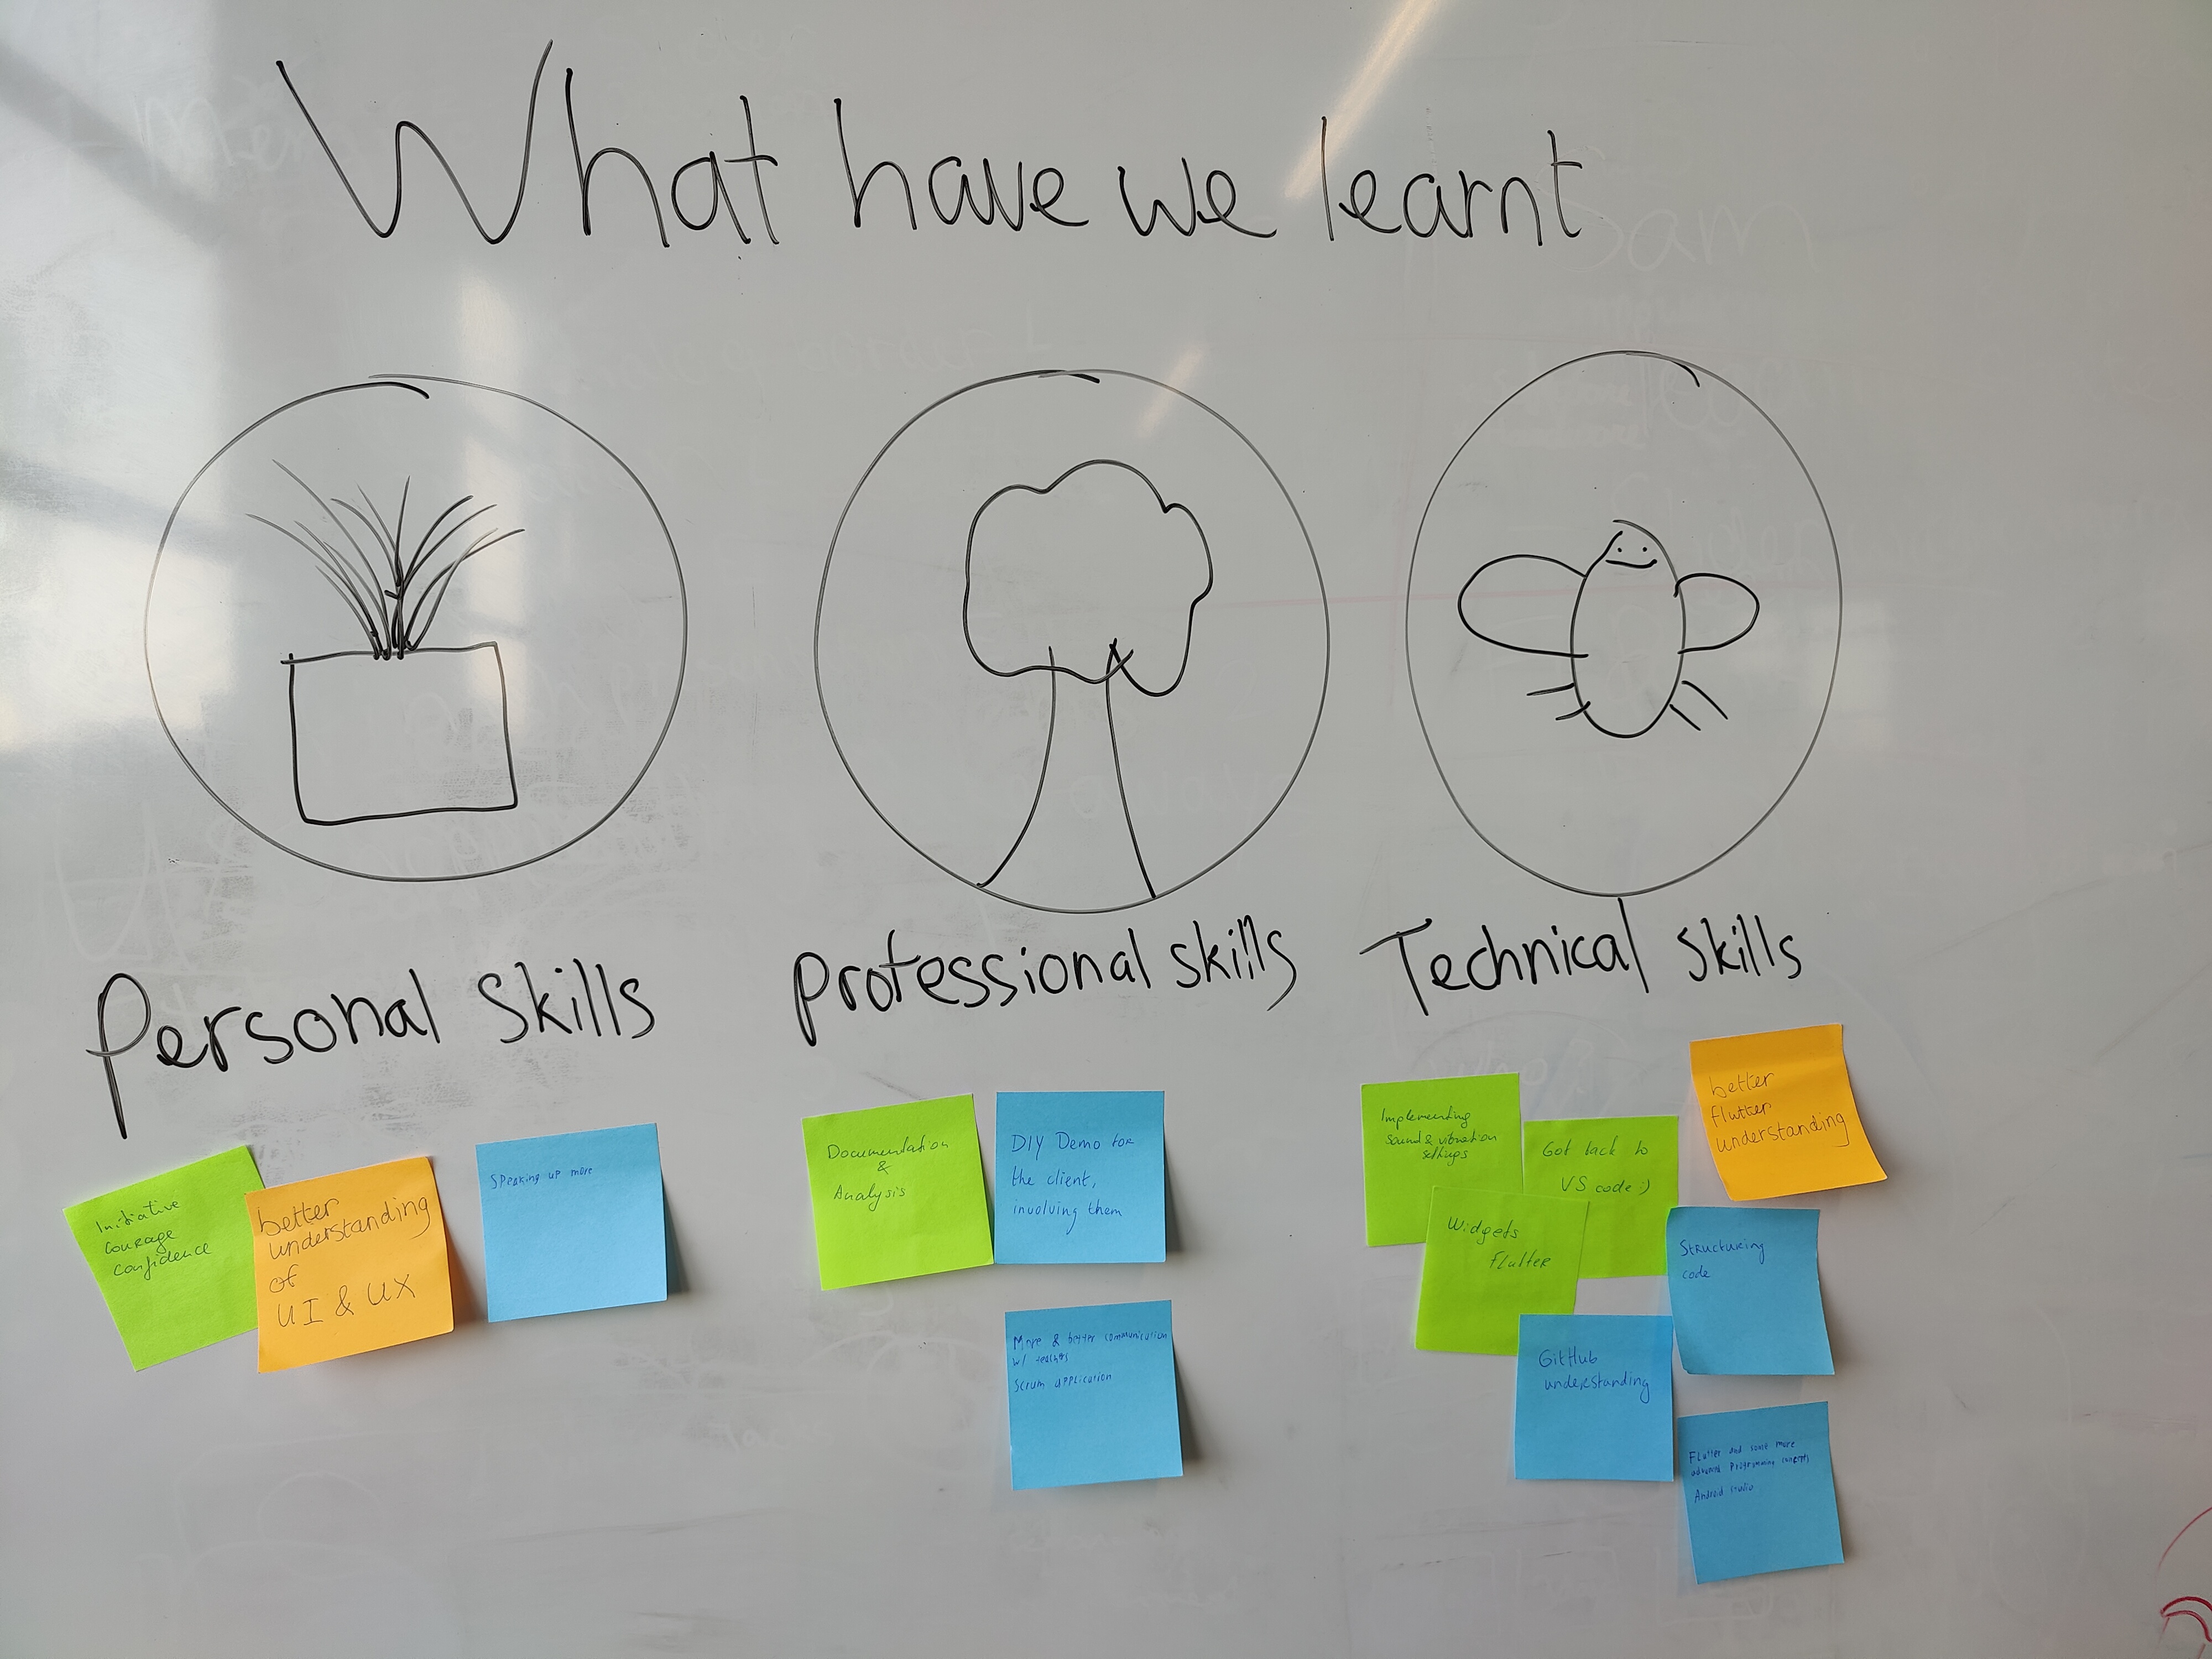 What have we learnt
Personal skills
professional skills
Technical skills
Initiative
courage
confidence
better
understanding
of
UI & UX
Speaking up more
Documentation
&
Analysis
DIY Demo for
the client,
involving them
More & better communication
w/ teachers
Scrum application
Implementing
sound & vibration
settings
Got back to
VS code :)
better
flutter
understanding
Widgets
flutter
Structuring
code
GitHub
understanding
Flutter and some more
advanced programming concepts
Android studio